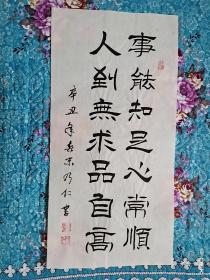 事能知足心常順
人到無求品自高
辛丑年春宋乃仁書